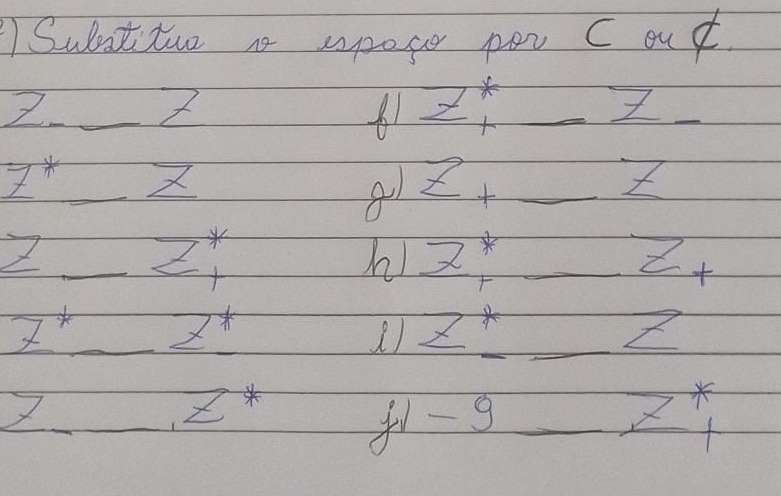 ) Substitua o espaço por C ou ₵.
Z_ __ Z f) Z*+ __ Z_
Z* __ Z g) Z+ __ Z
Z __ Z*+ h) Z*+ __ Z+
Z* __ Z*_ i) Z*_ __ Z
Z_ __ Z* j) -9 __ Z*+